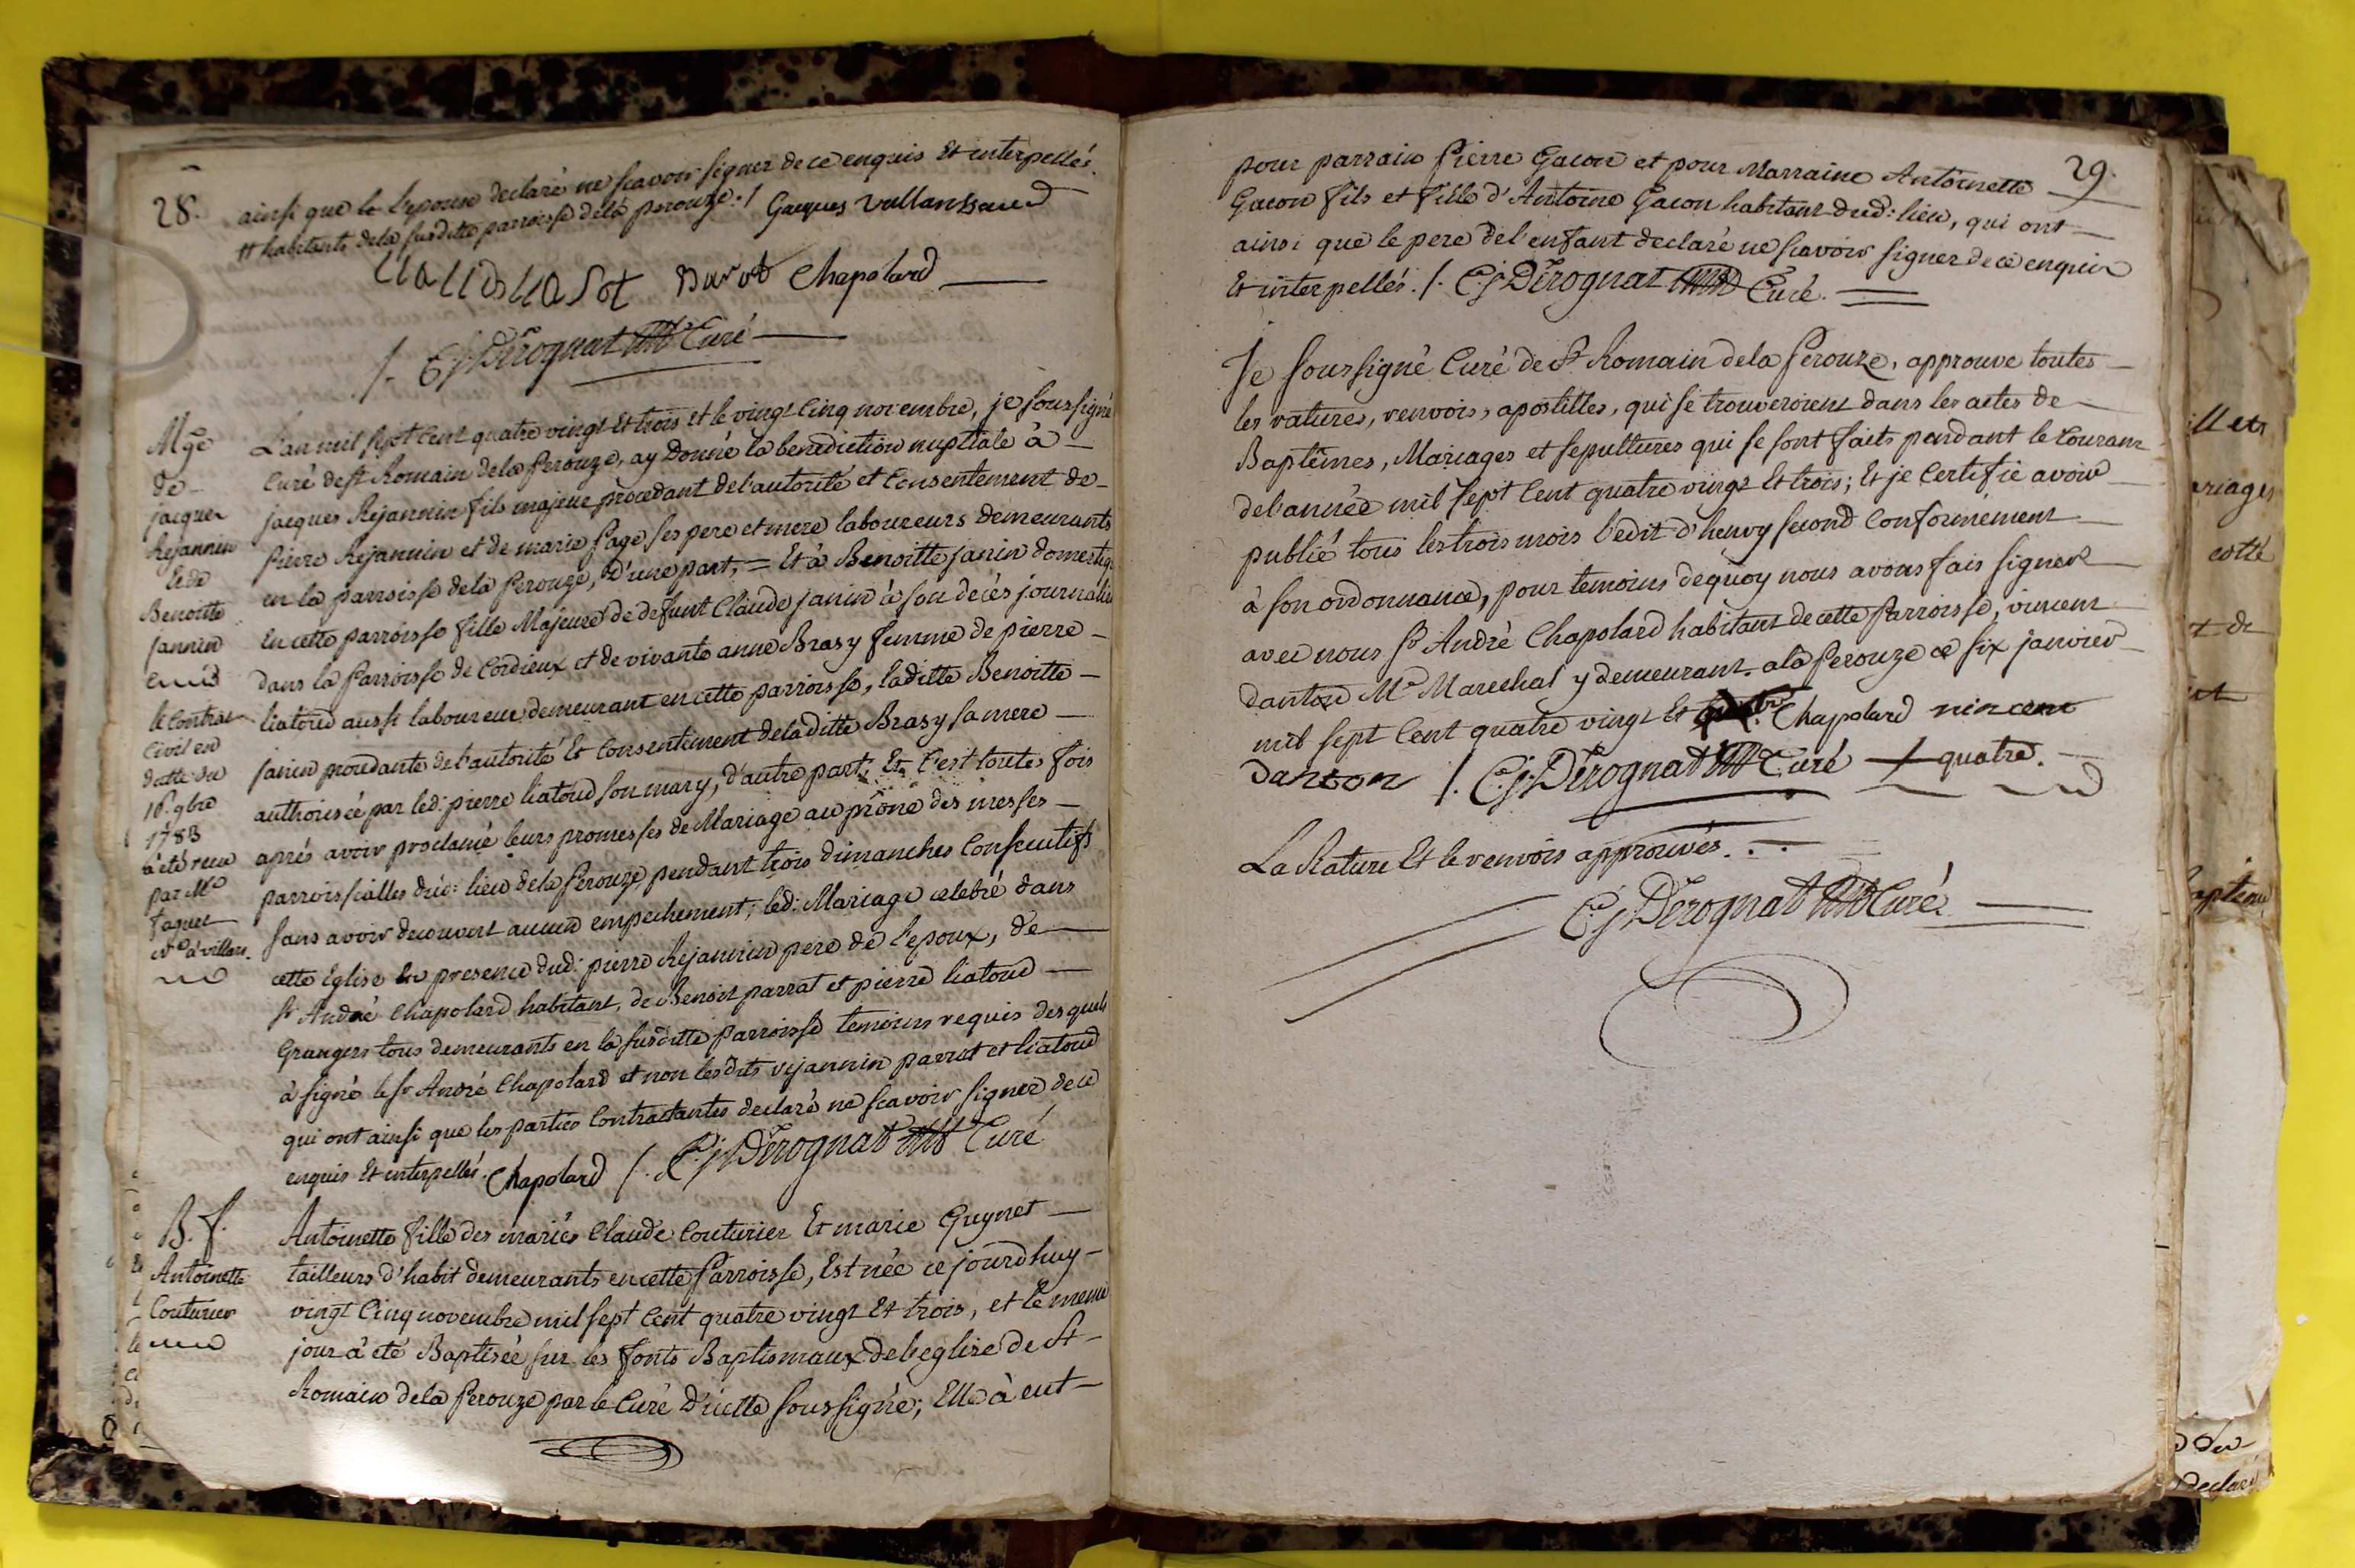 28.
ainsi que le l'epouse declaré ne scavoir signer de ce enquis Et interpellés.
# habitants dela susditte parroisse dela perouze ./ Gacques vullansaud
Darot Chapolard
/. C:j:Dérognat Curé
Mge
de
jacques
Rejannin
Et de
Benoitte
Jannin
le Contrat
Civil en
datte du
16e. 9bre
1783
à été recu
par Me
faguet
nre à villars.
L'an mil sept Cent quatre vingt Et trois et le vingt Cinq novembre, je soussigné
Curé de st Romain dela Perouze, ay Donné la benediction nuptiale à
jacques Rejannin fils majeur procedant de l'autorité et Consentement de
Pierre Rejannin et de marie Page ses pere et mere laboureurs demeurants
en la parroisse dela Perouze, D'une part, = Et à Benoitte janin domestiq:
En cette parroisse fille Majeure de defunt Claude janin à son decés journalier
dans la Parroisse de Cordieux et de vivante anne Brasy femme de pierre
liatoud aussi laboureur demeurant en cette parroisse, laditte Benoitte
janin procedante de l'autorité Et Consentement de laditte Brasy sa mere
authorisée par led: pierre liatoud son mary, d'autre part. Et C'est toutes fois
aprés avoir proclamé leurs promesses de Mariage au prône des messes
parroissialles dud: lieu dela Perouze pendant trois dimanches Consecutifs
sans avoir decouvert aucun empechement; led: Mariage celebré dans
cette Eglise En presence dud: pierre Rejannin pere de l'epoux, de
sr André Chapolard habitant, de Benoit parrat et pierre liatoud
Grangers tous demeurants en la susditte Parroisse temoins requis des quels
à signé le sr André Chapolard et non lesdits rejannin parrat et liatoud
qui ont ainsi que les parties Contractantes declaré ne scavoir signer de ce
enquis Et interpellés. Chapolard /. C:j:Dérognat Curé
B. f.
Antoinette
Couturier
Antoinette fille des mariés Claude Couturier Et marie Guynet
tailleurs d'habit demeurants en cette Parroisse, Est née ce jourd'huy
vingt Cinq novembre mil sept Cent quatre vingt Et trois, et le meme
jour à été Baptisée sur les fonts Baptismaux de l'eglise de St
Romain dela Perouze par le Curé D'icelle soussigné; Elle à eut
29.
pour parrain Pierre Gacon et pour Marraine Antoinette
Gacon fils et fille d'Antoine Gacon habitant dud: lieu, qui ont
ainsi que le pere del'enfant declaré ne scavoir signer de ce enquis
Et interpellés. /. C:j:Dérognat Curé.
Je soussigné Curé de St Romain dela Perouze, approuve toutes
les ratures, renvois, apostilles, qui se trouveroient dans les actes de
Baptêmes, Mariages et sepultures qui se sont faits pendant le Courant
del'année mil sept Cent quatre vingt Et trois; Et je Certifie avoir
publié tous les trois mois l'edit d'henry second Conformément
à son ordonnance, pour temoins dequoy nous avons fais signer
avec nous sr André Chapolard habitant de cette Parroisse, vincent
danton Me Marechal y demeurant. a la Perouze ce six janvier
mil sept Cent quatre vingt Et Chapolard vincent
danton /. C:j:Dérognat Curé + quatre.
La Rature Et le renvois approuvés.
C:j:Dérognat Curé